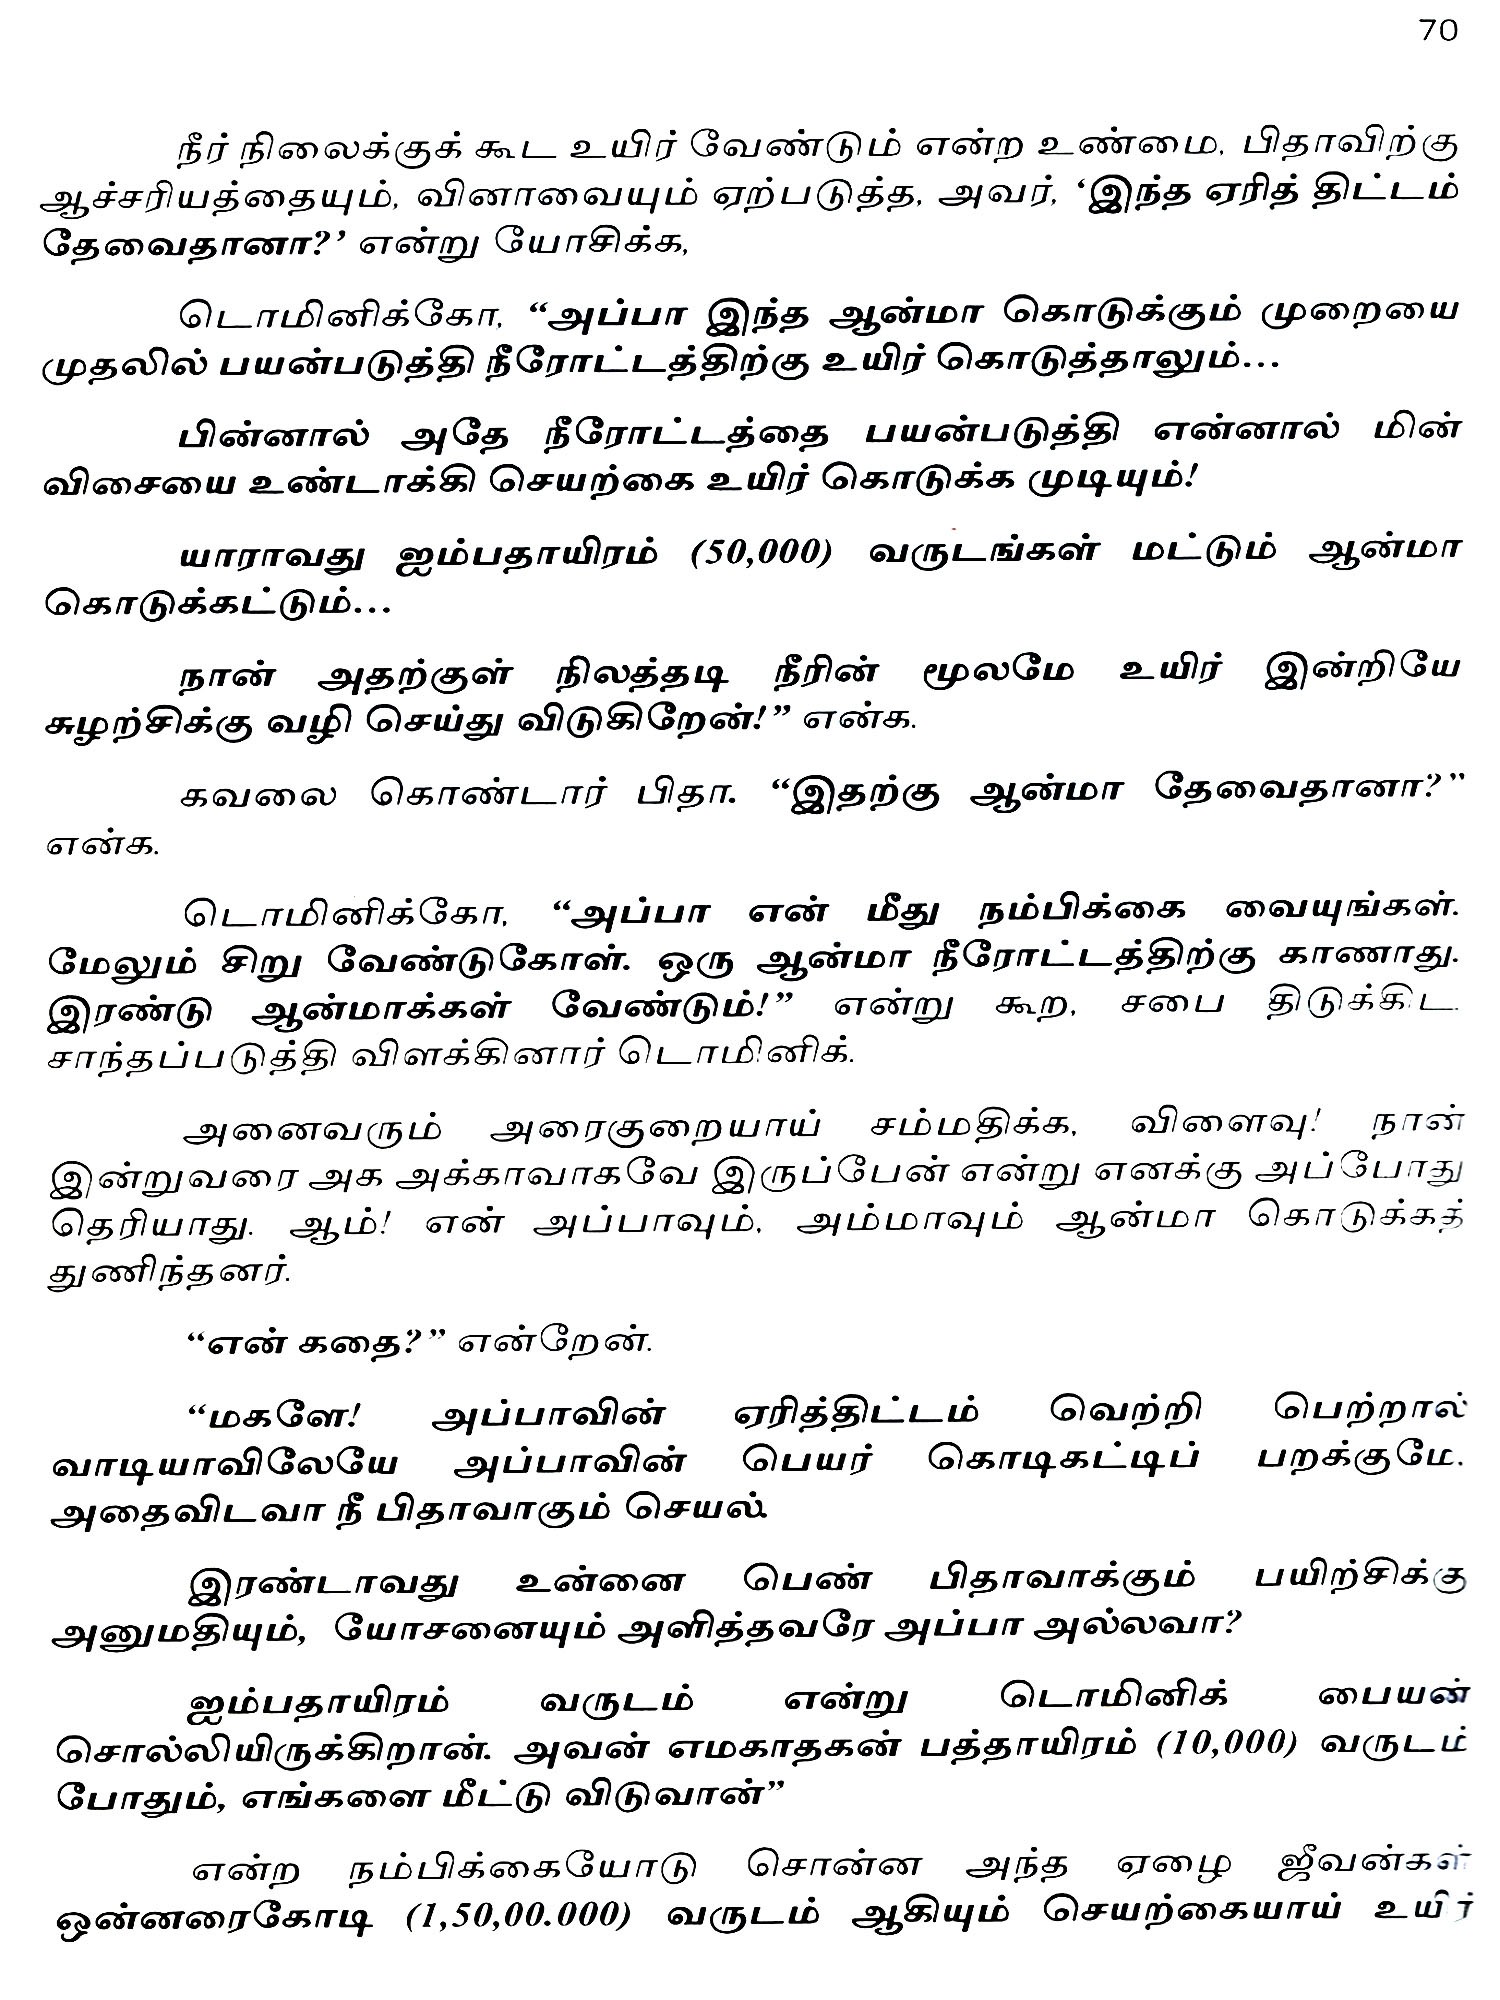 70
நீர் நிலைக்குக் கூட உயிர் வேண்டும் என்ற உண்மை, பிதாவிற்கு
ஆச்சரியத்தையும், வினாவையும் ஏற்படுத்த, அவர், ‘இந்த ஏரித் திட்டம்
தேவைதானா?’ என்று யோசிக்க,
டொமினிக்கோ, “அப்பா இந்த ஆன்மா கொடுக்கும் முறையை
முதலில் பயன்படுத்தி நீரோட்டத்திற்கு உயிர் கொடுத்தாலும்...
பின்னால் அதே நீரோட்டத்தை பயன்படுத்தி என்னால் மின்
விசையை உண்டாக்கி செயற்கை உயிர் கொடுக்க முடியும்!
யாராவது ஐம்பதாயிரம் (50,000) வருடங்கள் மட்டும் ஆன்மா
கொடுக்கட்டும்...
நான் அதற்குள் நிலத்தடி நீரின் மூலமே உயிர் இன்றியே
சுழற்சிக்கு வழி செய்து விடுகிறேன்!” என்க.
கவலை கொண்டார் பிதா. “இதற்கு ஆன்மா தேவைதானா?”
என்க.
டொமினிக்கோ, “அப்பா என் மீது நம்பிக்கை வையுங்கள்.
மேலும் சிறு வேண்டுகோள். ஒரு ஆன்மா நீரோட்டத்திற்கு காணாது.
இரண்டு ஆன்மாக்கள் வேண்டும்!” என்று கூற, சபை திடுக்கிட.
சாந்தப்படுத்தி விளக்கினார் டொமினிக்.
அனைவரும் அரைகுறையாய் சம்மதிக்க, விளைவு! நான்
இன்றுவரை அக அக்காவாகவே இருப்பேன் என்று எனக்கு அப்போது
தெரியாது. ஆம்! என் அப்பாவும், அம்மாவும் ஆன்மா கொடுக்கத்
துணிந்தனர்.
“என் கதை?” என்றேன்.
“மகளே! அப்பாவின் ஏரித்திட்டம் வெற்றி பெற்றால்
வாடியாவிலேயே அப்பாவின் பெயர் கொடிகட்டிப் பறக்குமே.
அதைவிடவா நீ பிதாவாகும் செயல்.
இரண்டாவது உன்னை பெண் பிதாவாக்கும் பயிற்சிக்கு
அனுமதியும், யோசனையும் அளித்தவரே அப்பா அல்லவா?
ஐம்பதாயிரம் வருடம் என்று டொமினிக் பையன்
சொல்லியிருக்கிறான். அவன் எமகாதகன் பத்தாயிரம் (10,000) வருடம்
போதும், எங்களை மீட்டு விடுவான்”
என்ற நம்பிக்கையோடு சொன்ன அந்த ஏழை ஜீவன்கள்
ஒன்னரைகோடி (1,50,00.000) வருடம் ஆகியும் செயற்கையாய் உயிர்